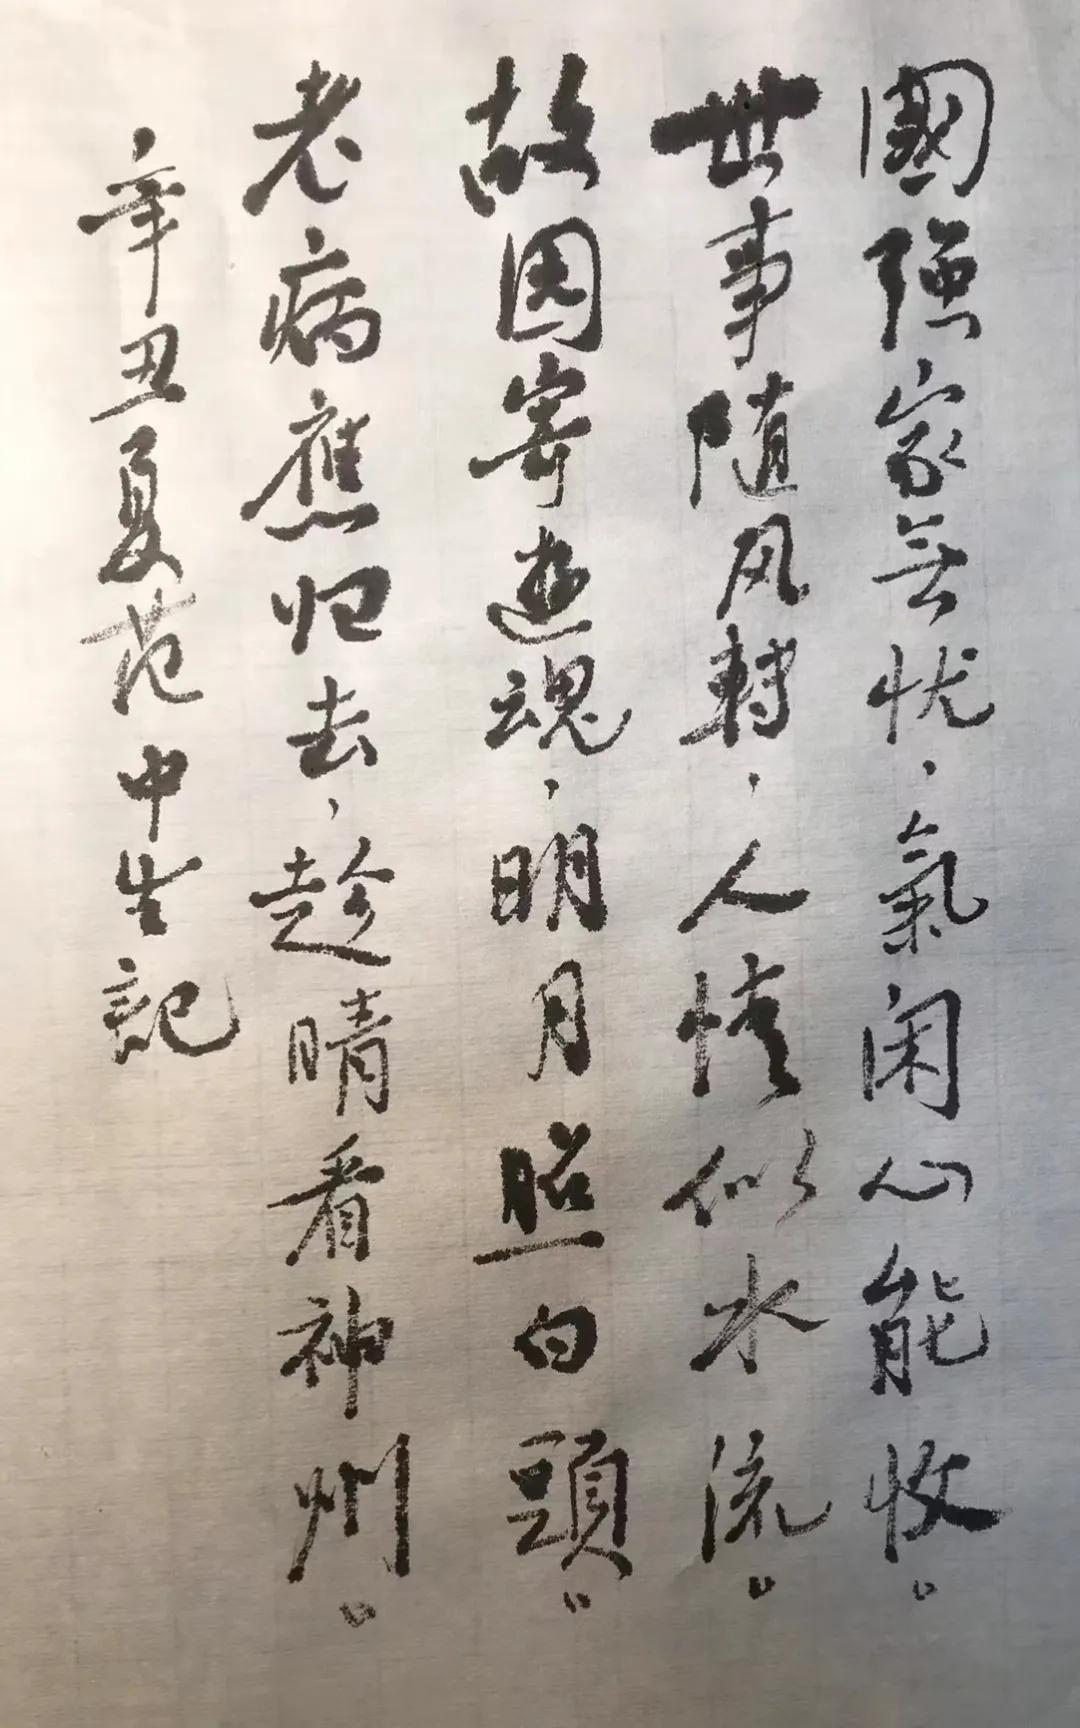 國强家无忧，氣闲心能收。
世事随风轉，人情似水流。
故园寄遊魂，明月照白頭。
老病應归去，趁晴看神州。
辛丑夏范中生記